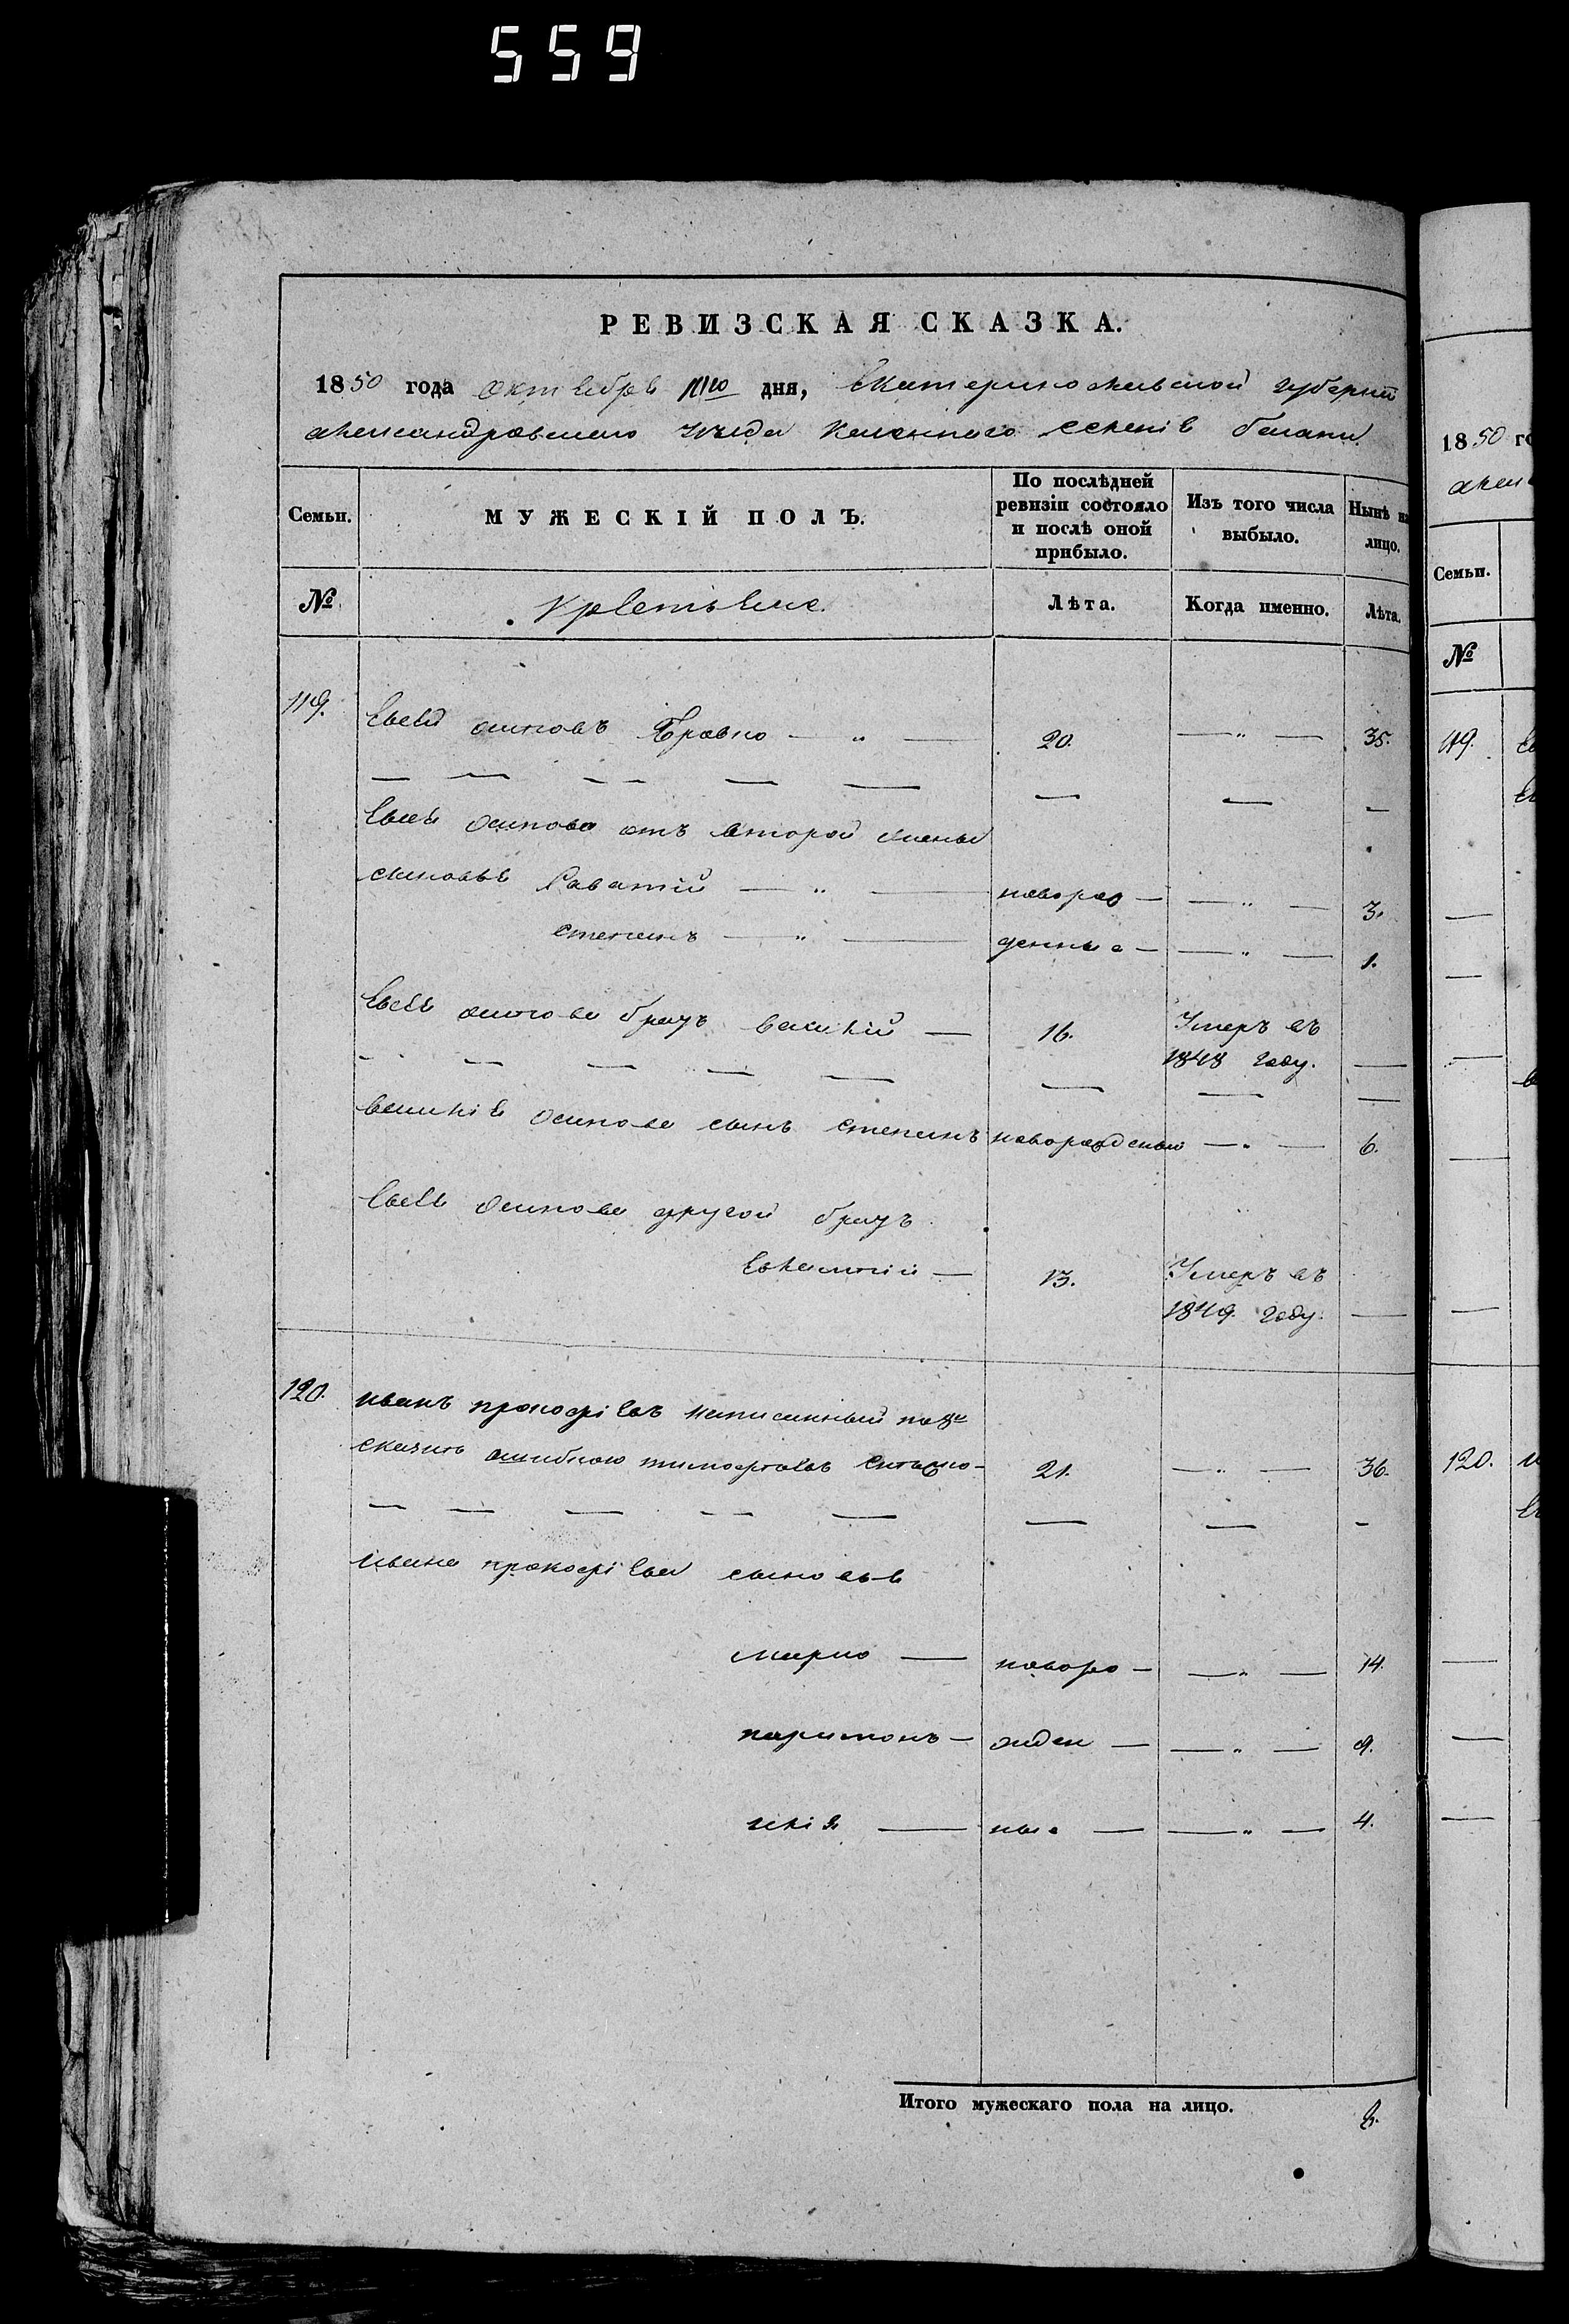 559
РЕВИЗСКАЯ СКАЗКА.
1850 года октября дня, Екатеринославской губерніи
александровскаго уѣзда казеннаго селенія
Семьи. МУЖЕСКІЙ ПОЛЪ. По послѣдней ревизіи состояло и послѣ оной прибыло. Изъ того числа выбыло. Нынѣ на лицо.
№ Лѣта. Когда именно. Лѣта.
119. Евсей осиповъ 20. — „ — 35.
Евсея осипова отъ второй жены
сыновья Саватій — „ — новорож — — „ — 3.
степанъ — „ — денные — — „ — 1.
Евсея осипова братъ василій — 16. Умеръ въ
1848 году. —
василія осипова сынъ степанъ новорожденный — „ — 6.
Евсея осипова другой братъ
13. Умеръ въ
1849. году. —
120. иванъ прокофіевъ написанный по 8й
сказкѣ ошибкою тимофеевъ 21. — „ — 36.
ивана прокофіева сыновья
марко — новоро — — „ — 14.
паримонъ — жден — — „ — 9.
илія — ные — — „ — 4.
Итого мужескаго пола на лицо. 8.
1850 го
Семьи.
№
119.
120.